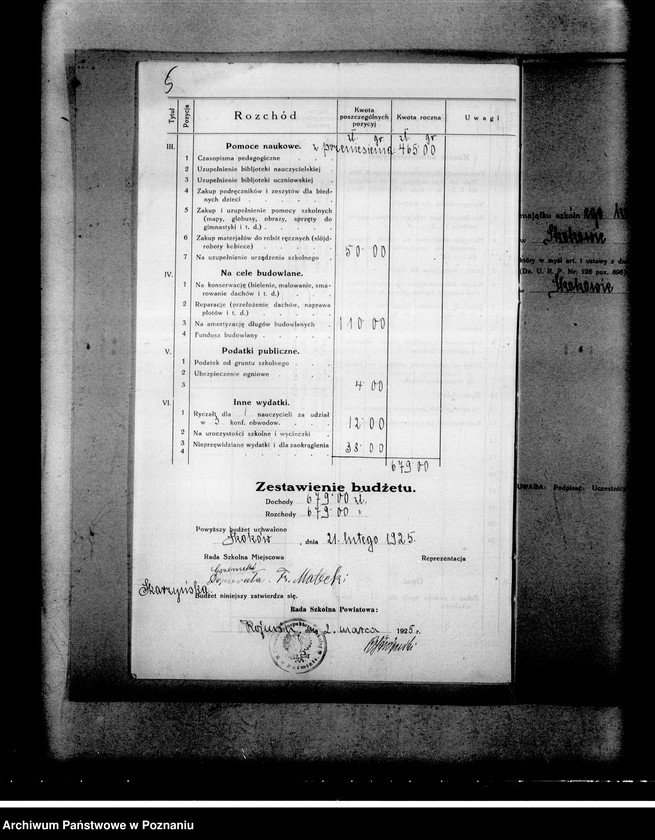 5
Tytuł Pozycja Rozchód Kwota poszczególnych pozycyj Kwota roczna Uwagi
zł. gr zł. gr
III. Pomoce naukowe. z przeniesienia 465 00
1 Czasopisma pedagogiczne
2 Uzupełnienie bibljoteki nauczycielskiej
3 Uzupełnienie bibljoteki uczniowskiej
4 Zakup podręczników i zeszytów dla bied-
nych dzieci
5 Zakup i uzupełnienie pomocy szkolnych
(mapy, globusy, obrazy, sprzęty do
gimnastyki i t. d.)
6 Zakup materjałów do robót ręcznych (slöjd-
roboty kobiece) 50 00
7 Na uzupełnienie urządzenia szkolnego
IV. Na cele budowlane.
1 Na konserwację (bielenie, malowanie, sma-
rowanie dachów i t. d.)
2 Reparacje (przełożenie dachów, naprawa
płotów i t. d.)
3 Na amortyzację długów budowlanych 110 00
4 Fundusz budowlany
V. Podatki publiczne.
1 Podatek od gruntu szkolnego
2 Ubezpieczenie ogniowe
3 4 00
VI. Inne wydatki.
1 Ryczałt dla 1 nauczycieli za udział
w 3 konf. obwodow. 12 00
2 Na uroczystości szkolne i wycieczki
3 Nieprzewidziane wydatki i dla zaokrąglenia 38 00
4
679 00
Zestawienie budżetu.
Dochody 679 00 zł.
Rozchody 679 00 "
Powyższy budżet uchwalono
Skoków, dnia 21. lutego 1925.
Rada Szkolna Miejscowa Reprezentacja
Fr. Matecki
Skarzyńska
Budżet niniejszy zatwierdza się.
Rada Szkolna Powiatowa:
2. marca 1925 r.
majątku szkoln
w Skokowie
który w myśl art. i ustawy z dn
(Dz. U. R. P. Nr. 198 poz. 898)
Skokowie
UWAGA: Podpisać: Uczestnicy
Archiwum Państwowe w Poznaniu